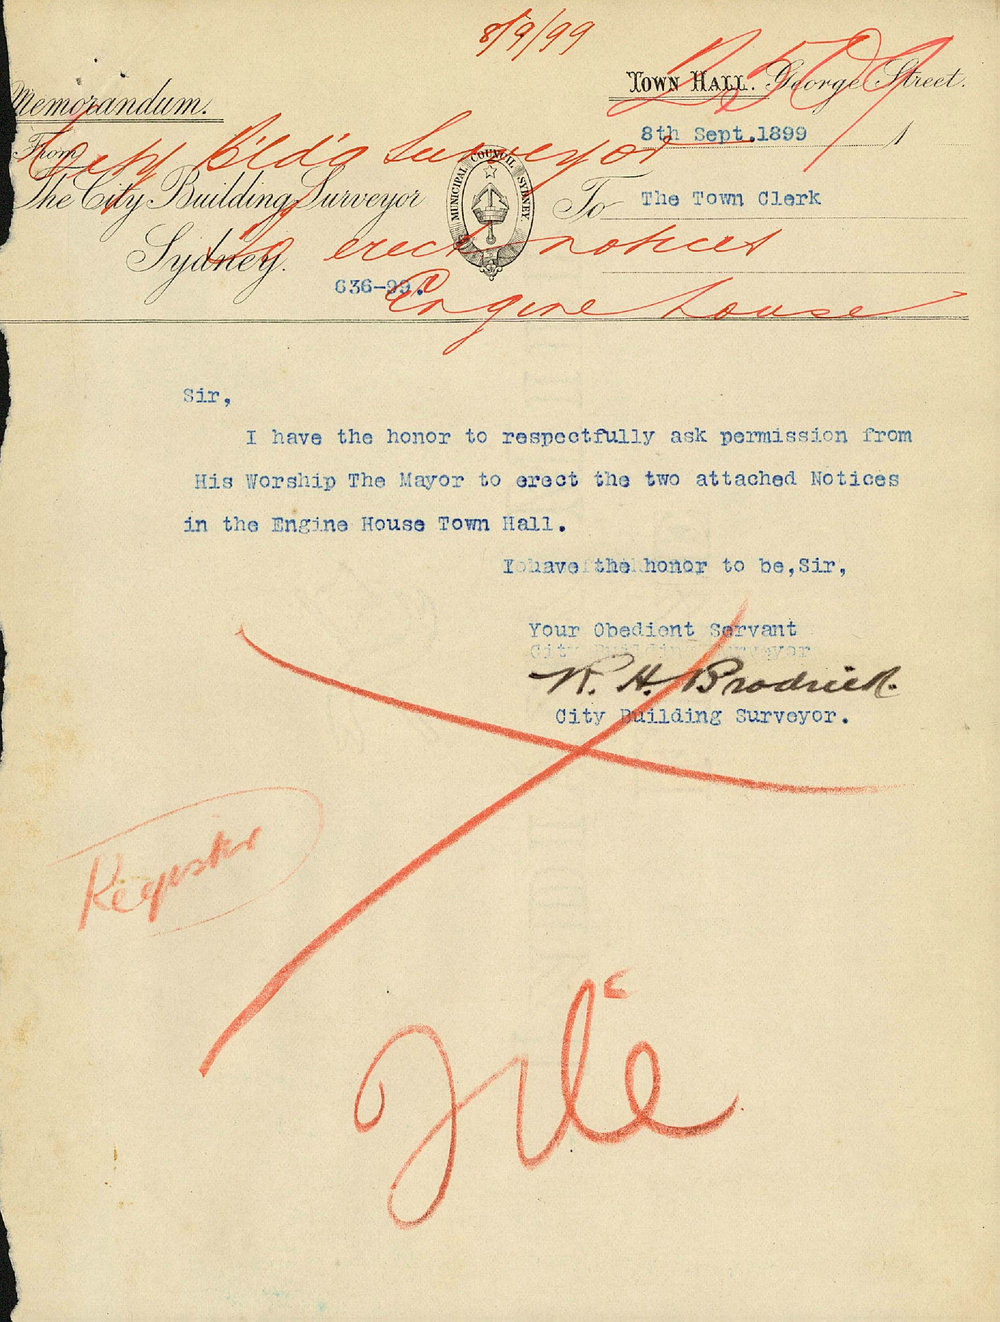 8/9/99
Memorandum.
TOWN HALL. George Street.
8th Sept.1899
From
City B'ld'g Surveyor
The City Building Surveyor
MUNICIPAL COUNCIL SYDNEY.
To The Town Clerk
Sydney.
erect notices
636-99.
Engine house
Sir,
I have the honor to respectfully ask permission from
His Worship The Mayor to erect the two attached Notices
in the Engine House Town Hall.
I have the honor to be,Sir,
Your Obedient Servant
City Building Surveyor
R. H. Brodrick.
City Building Surveyor.
Register
File